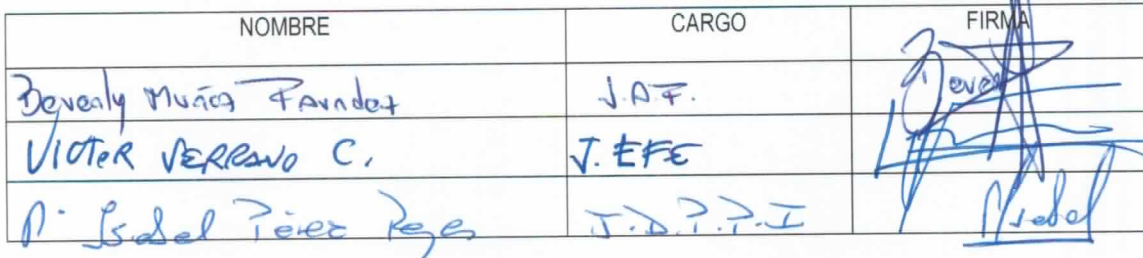 NOMBRE CARGO FIRMA
Beverly Muñoz J.A.F. Bever
VICTOR SERRANO C. J. EFE
Isabel Pérez Reyes J.D.P.P.I Misabel